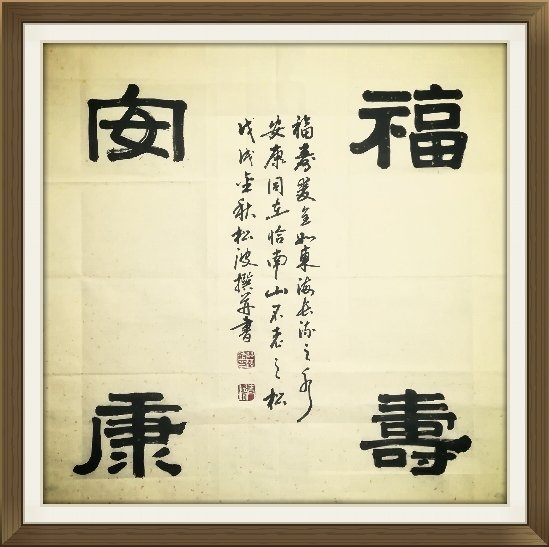 福壽
福寿雙全如東海長流之水
安康同在恰南山不老之松
戊戌金秋松波撰并書
安康